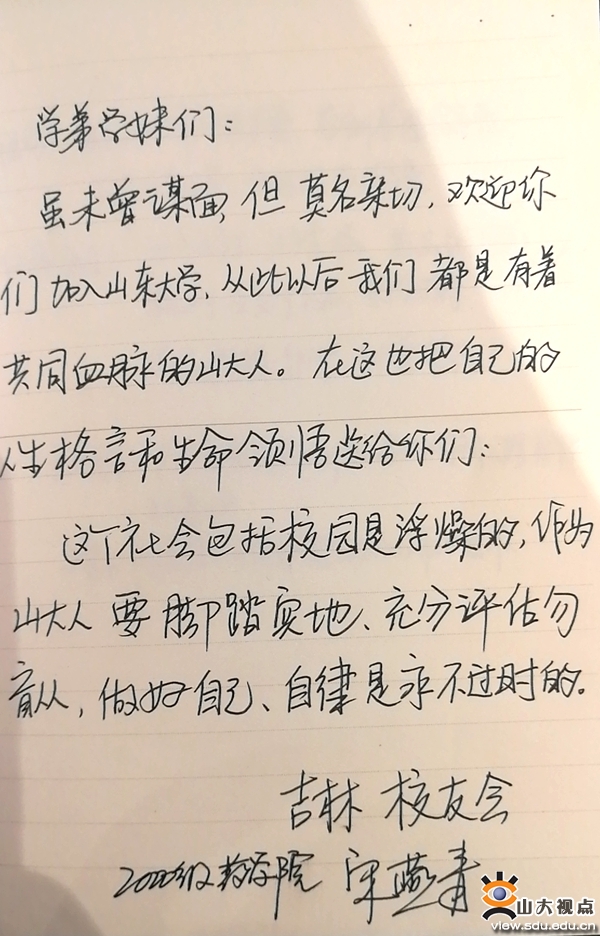 学弟学妹们：
虽未曾谋面，但莫名亲切，欢迎你
们加入山东大学，从此以后我们都是有着
共同血脉的山大人。在这也把自己的
人生格言和生命领悟送给你们：
这个社会包括校园是浮燥的，作为
山大人要脚踏实地、充分评估勿
盲从，做好自己、自律是永不过时的。
吉林校友会
2000级药学院 宋燕青
山大视点
view.sdu.edu.cn